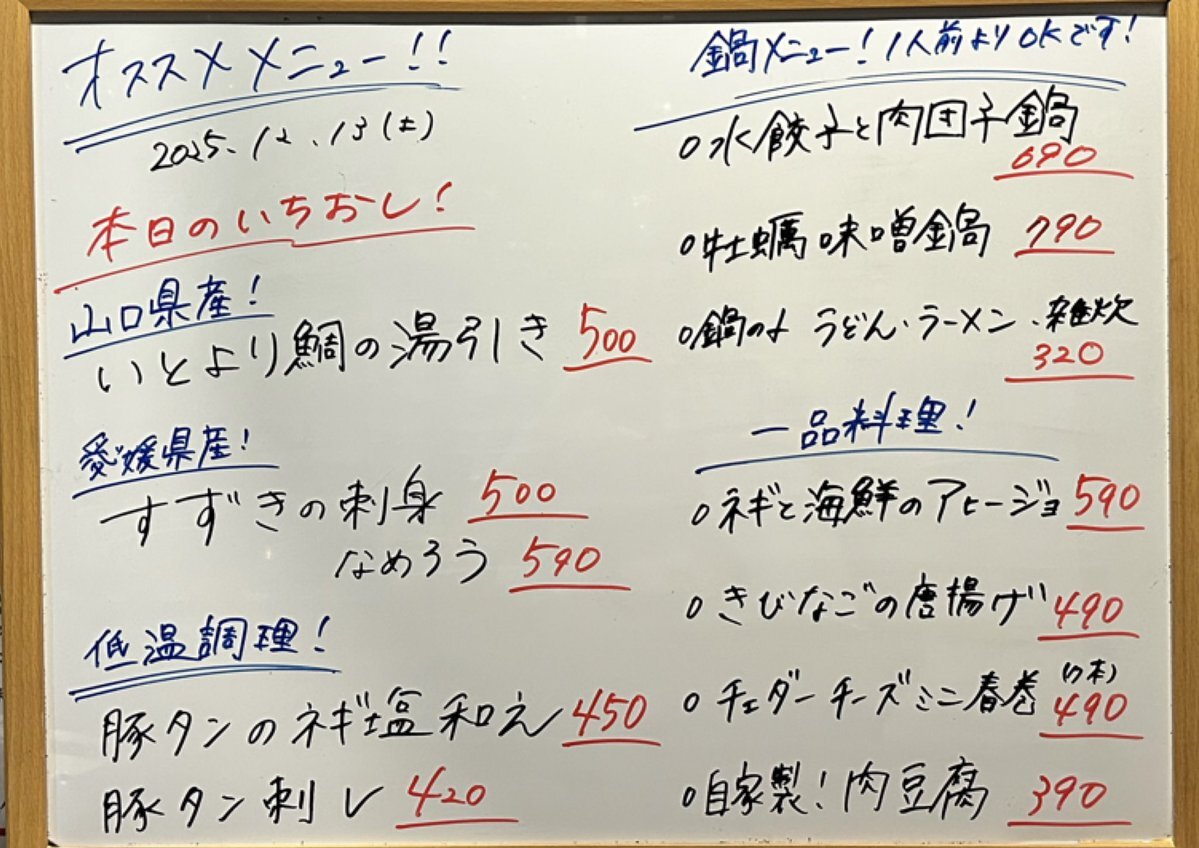 オススメメニュー!!
2025.12.13(土)
本日のいちおし!
山口県産!
いとより鯛の湯引き 500
愛媛県産!
すずきの刺身 500
なめろう 590
低温調理!
豚タンのネギ塩和え 450
豚タン刺し 420
鍋メニュー!1人前よりOKです!
○水餃子と肉団子鍋
690
○牡蠣味噌鍋 790
○鍋の〆 うどん・ラーメン・雑炊
320
一品料理!
○ネギと海鮮のアヒージョ 590
○きびなごの唐揚げ 490
○チェダーチーズミニ春巻 (7本) 490
○自家製!肉豆腐 390